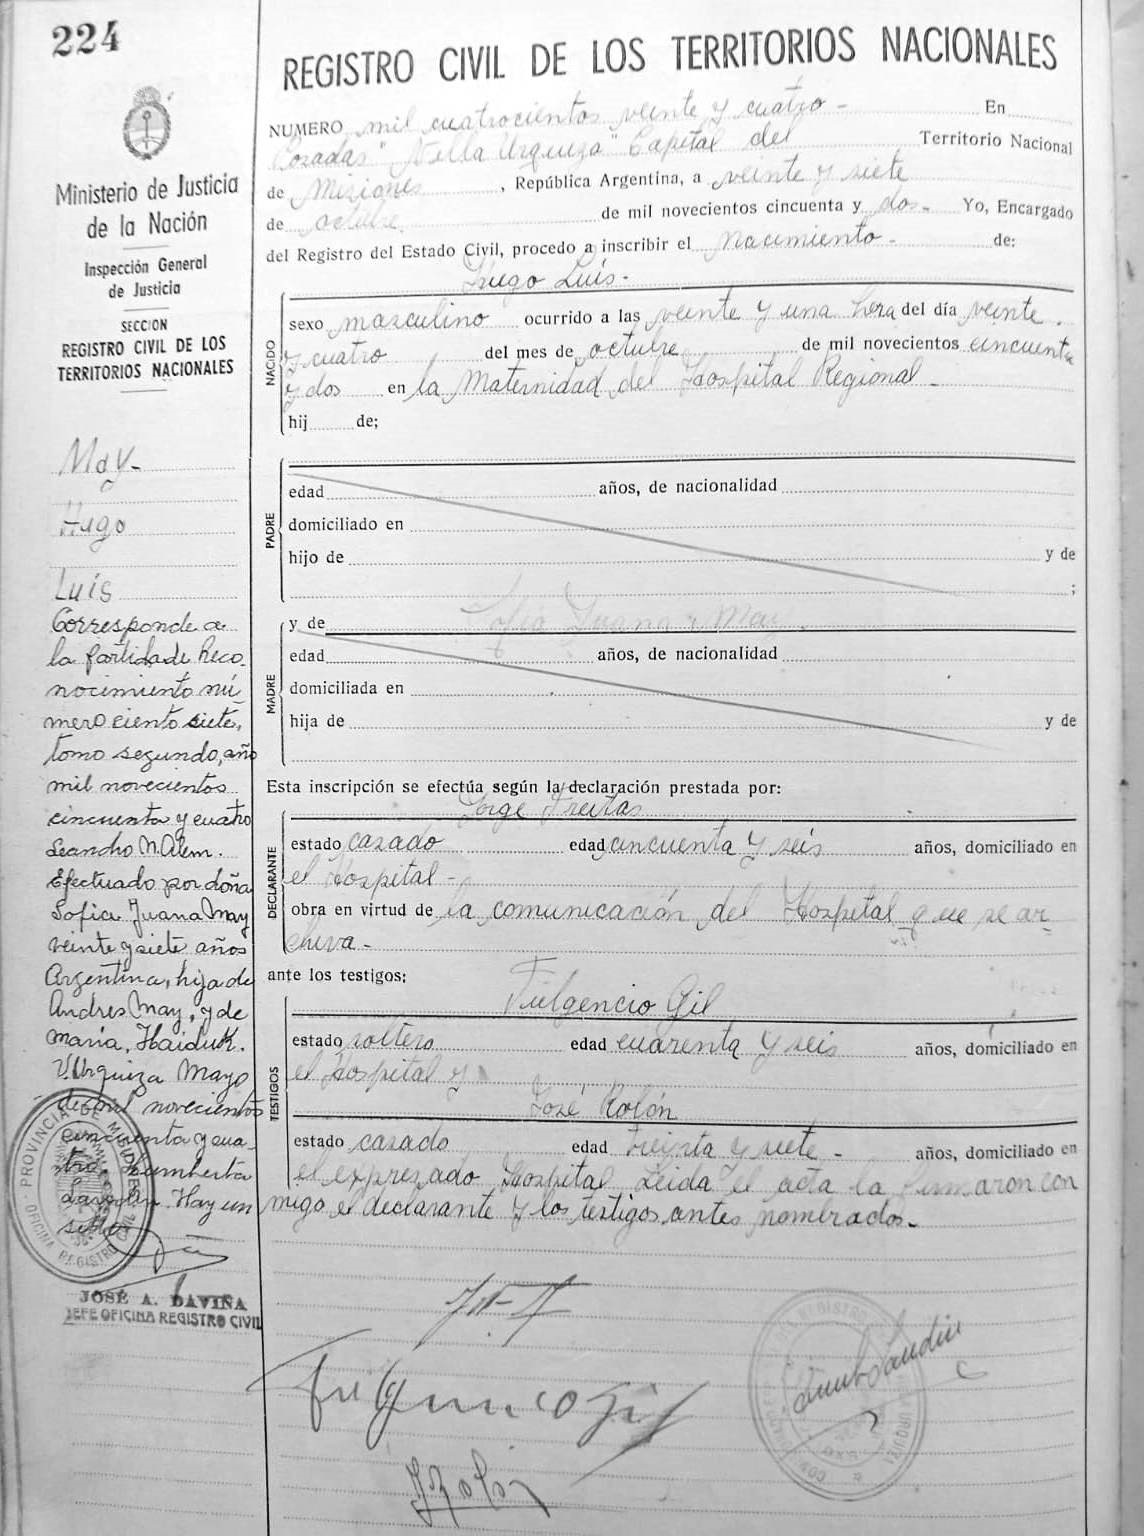 224
REGISTRO CIVIL DE LOS TERRITORIOS NACIONALES
NUMERO mil cuatrocientos veinte y cuatro - En
Posadas "Villa Urquiza" Capital del Territorio Nacional
de Misiones, República Argentina, a veinte y siete
de octubre de mil novecientos cincuenta y dos- Yo, Encargado
del Registro del Estado Civil, procedo a inscribir el nacimiento - de:
Hugo Luis-
NACIDO
sexo masculino ocurrido a las veinte y una hora del día veinte
y cuatro del mes de octubre de mil novecientos cincuenta
y dos en la Maternidad del Hospital Regional -
hij de;
PADRE
edad años, de nacionalidad
domiciliado en
hijo de y de
;
MADRE
y de Sofía Juana May
edad años, de nacionalidad
domiciliada en
hija de y de
Esta inscripción se efectúa según la declaración prestada por:
Jorge Freitas
DECLARANTE
estado casado edad cincuenta y seis años, domiciliado en
el Hospital -
obra en virtud de la comunicación del Hospital que se ar-
chiva -
ante los testigos:
Fulgencio Gil
TESTIGOS
estado soltero edad cuarenta y seis años, domiciliado en
el Hospital y
José Rolón
estado casado edad treinta y siete - años, domiciliado en
el expresado Hospital Leida el acta la firmaron con
migo el declarante y los testigos antes nombrados -
Fulgencio Gil
J Rolón
Ministerio de Justicia
de la Nación
Inspección General
de Justicia
SECCION
REGISTRO CIVIL DE LOS
TERRITORIOS NACIONALES
May-
Hugo
Luís
Corresponde a
la partida de Reco-
nocimiento nú-
mero ciento siete,
tomo segundo, año
mil novecientos
cincuenta y cuatro
Leandro N. Alem.
Efectuado por doña
Sofia Juana May
veinte y siete años
Argentina, hija de
Andres May, y de
maría, Haiduk.
V. Urquiza Mayo
de mil novecientos
cincuenta y cua-
tro. Humberto
Hay un
sello
PROVINCIA DE MISIONES
OFICINA REGISTRO CIVIL
JOSÉ A. DAVIÑA
JEFE OFICINA REGISTRO CIVIL